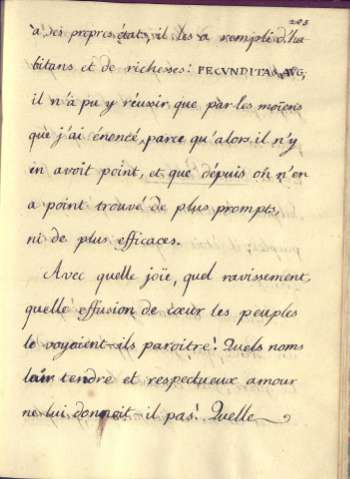 285
a' ses propres états, il les a rempli d'ha
bitans et de richesses: FECVNDITAS AVG,
il n'a pu y réussir que par les moïens
que j'ai énoncé, parce qu'alors il n'y
en avoit point, et que dépuis on n'en
a point trouvé de plus prompts,
ni de plus efficaces.
Avec quelle joïe, quel ravissement,
quelle effusion de cœur les peuples
le voyoient-ils paroitre! Quels noms
leur tendre et respectueux amour
ne lui donnoit-il pas! Quelle